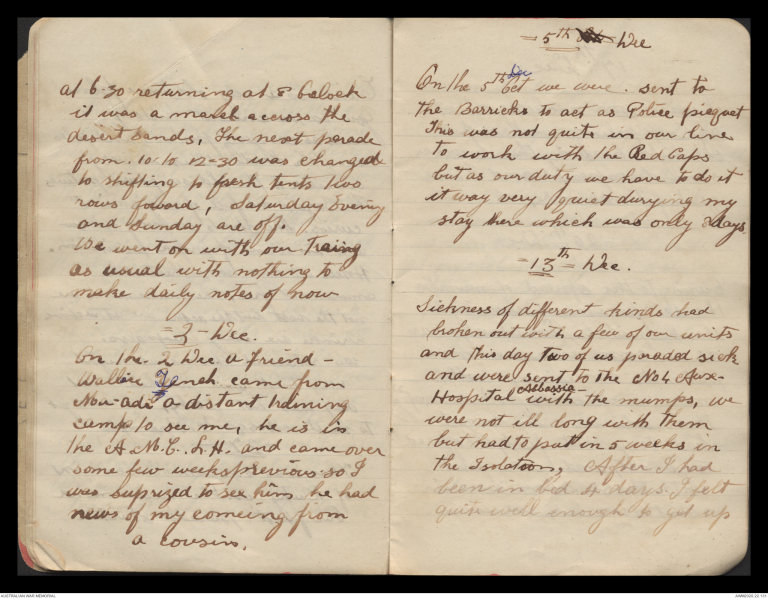 at 6-30 returning at 8 Oclock
it was a march accross the
desert sands, The next parade
from 10 to 12-30 was changed
to shifting to fresh tents two
rows foward, Saturday Evening
and Sunday are off.
We went on with our Traing
as usual with nothing to
make daily notes of now
=2= Dec.
On the 2 Dec a friend -
Wallace Tench came from
a distant training
camp to see me, he is in
the A.M.C. L.H. and came over
some few weeks previous so I
was suprized to see him he had
news of my comeing from
a cousin.
= 5th Dec
On the 5th Dec we were sent to
the Barricks to act as Police picquet
This was not quite in our line
to work with the Red Caps
but as our duty we have to do it
it way very quiet durying my
stay there which was only 2 days.
=13th= Dec.
Sickness of different kinds had
broken out with a few of our units
and this day two of us paraded sick
and were sent to the No 4 Aux-
Abbassia
Hospital with the mumps, we
were not ill long with them
but had to put in 5 weeks in
the Isolation, After I had
been in bed 4 days I felt
quite well enough to get up
AUSTRALIAN WAR MEMORIAL